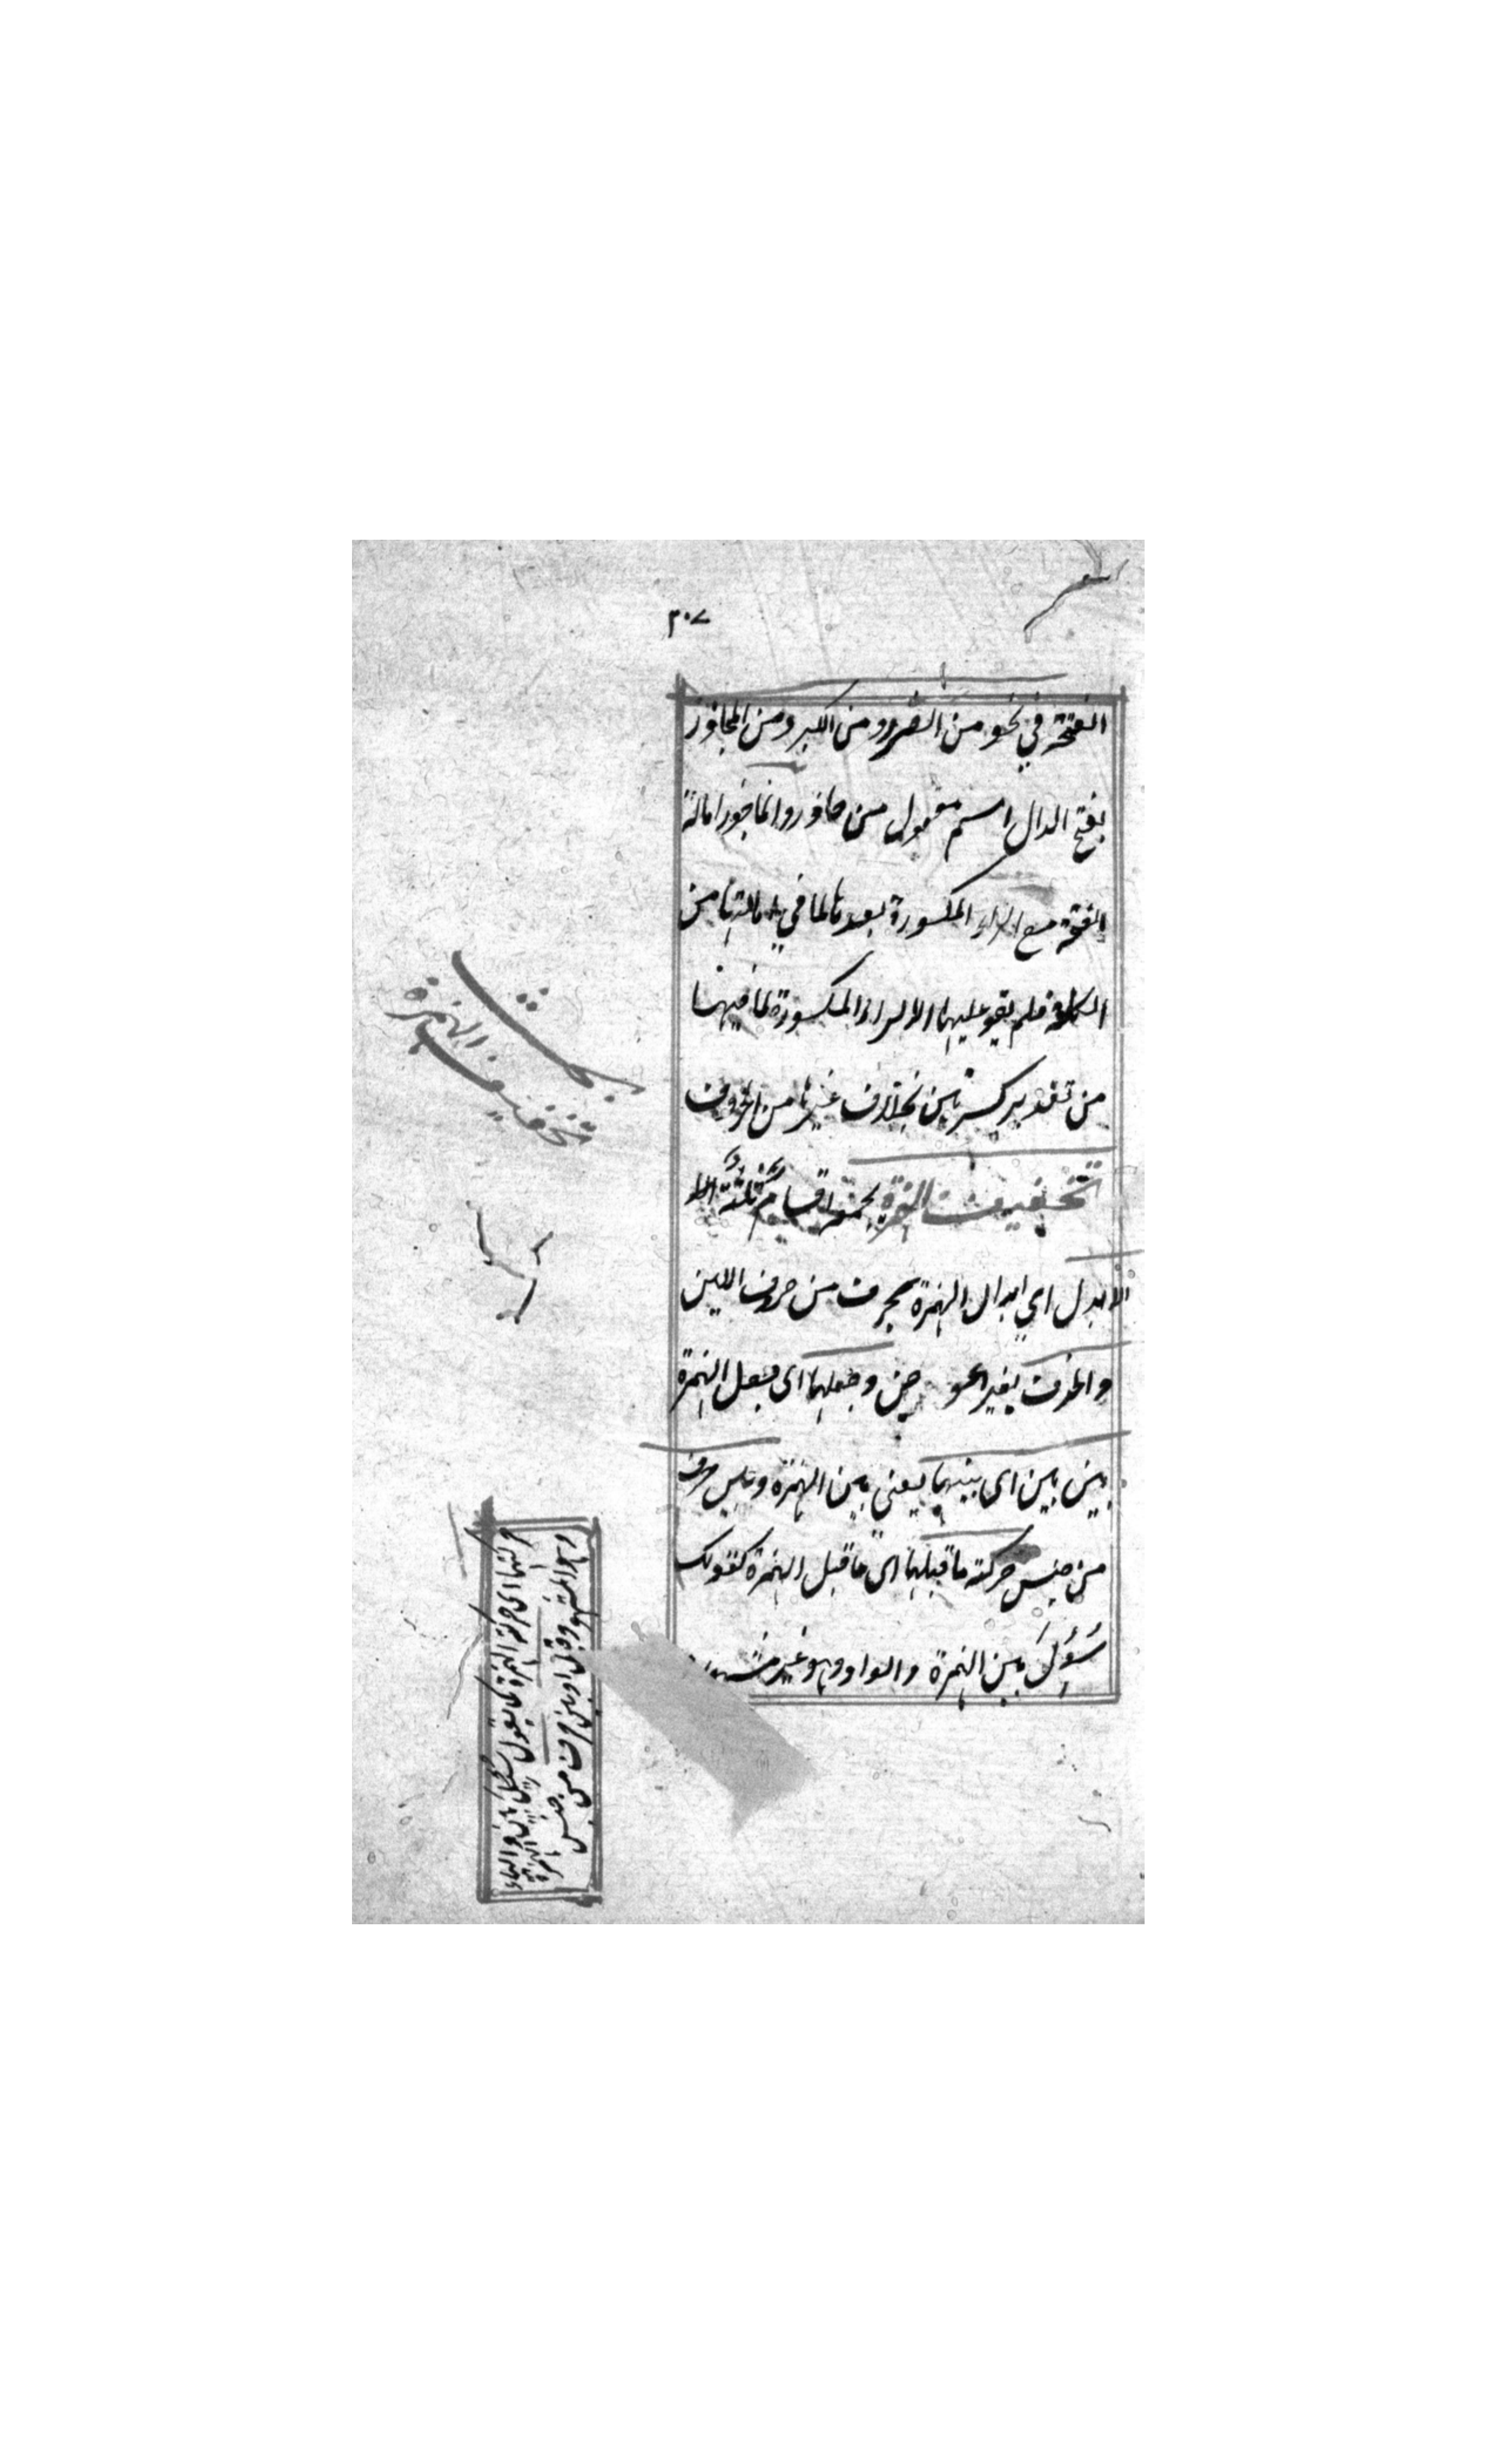 ٣٠٧
الفتحة في نحو من الضرر ومن الكبر ومن المحاذر
بفتح الدال اسم مفعول من حاذر وانما جوز امالة
الفتحة مع الراء المكسورة بعدها لما في امالتها من
الكلفة فلم يقو عليها الا الراء المكسورة لما فيها
من تقدير كسرتين بخلاف غيرها من الحروف
تخفيف الهمزة يجمعه اقسام ثلثة
الابدال اي ابدال الهمزة بحرف من حروف اللين
والحذف بغير عوض وجعلها اى جعل الهمزة
بين بين اى بينهما يعني بين الهمزة وبين حرف
من جنس حركة ما قبلها اى ما قبل الهمزة كقولك
سُؤِلَ بين الهمزة والواو وهو غير مشهور
بحث
تخفيف الهمزة
وهو المشهور وقيل او بين حرف من جنس
حركتها اى حركة الهمزة كما تقول سئل بين الهمزة والياء